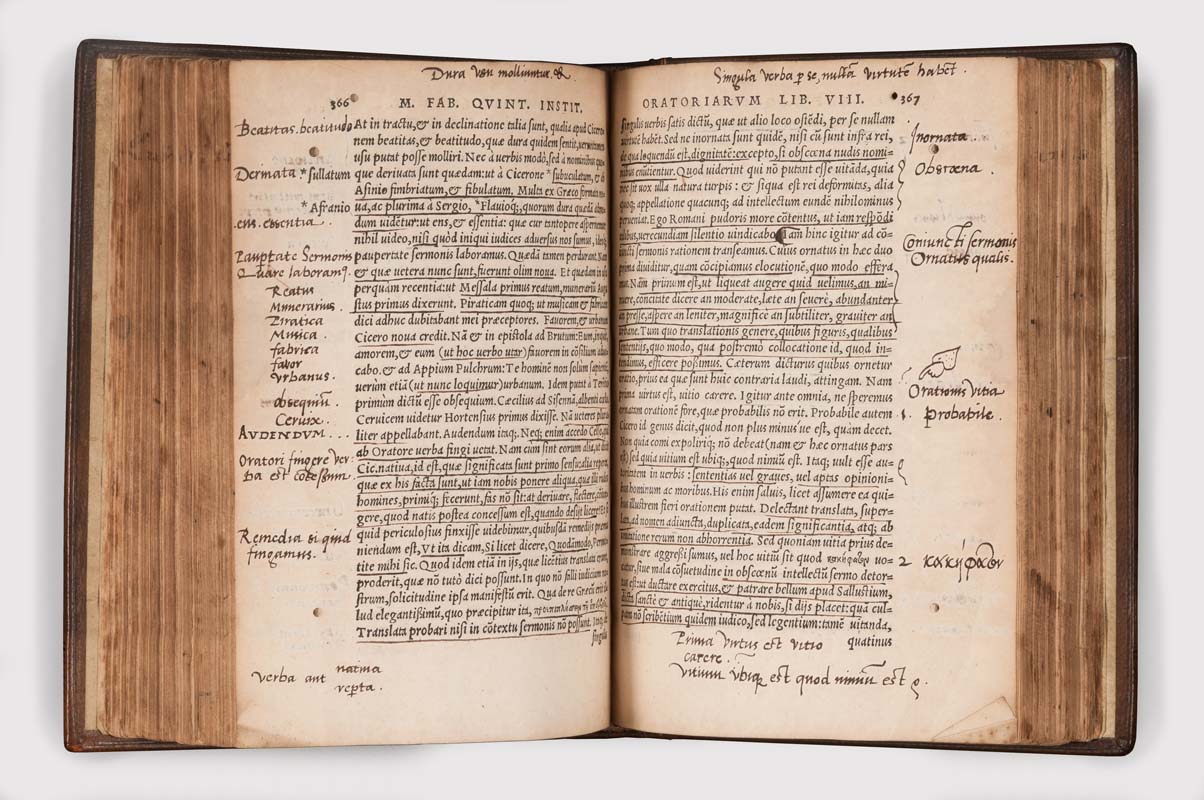 Dura usu molliuntur &
366
M. FAB. QVINT. INSTIT.
Beatitas. beatitudo
At in tractu, & in declinatione talia sunt, qualia apud Cicero
nem beatitas, & beatitudo, quæ dura quidem sentit, veruntamen
usu putat posse molliri. Nec à verbis modò, sed à nominibus quo
Dermata * sullatum
que deriuata sunt quædam: ut à Cicerone * subuculatum, & di
Asinio fimbriatum, & fibulatum. Multa ex Græco formata no
* Afranio
ua, ac plurima à Sergio, * Flauioq;, quorum dura quædā
ens. essentia.
dum uidētur: ut ens, & essentia: quæ cur tantopere aspernemur
nihil uideo, nisi quòd iniqui iudices aduersus nos sumus,
Paupertate Sermonis
paupertate sermonis laboramus. Quædā tamen perdurant. Nam
Quare laboramꝰ.
& quæ uetera nunc sunt, fuerunt olim noua. Et quædam in
Reatus
perquam recentia: ut Messala primus reatum, munerariū Augu
Munerarius.
stus primus dixerunt. Piraticam quoq; ut musicam & fabricam
Piratica
dici adhuc dubitabant mei præceptores. Fauorem, & urbanum
Musica
Cicero noua credit. Nā & in epistola ad Brutum: Eum, inquit,
fabrica
amorem, & eum (ut hoc verbo utar) fauorem in cōsilium
fauor
cabo. & ad Appium Pulchrum: Te hominē non solùm sapientē,
Vrbanus.
uerùm etiā (ut nunc loquimur) urbanum. Idem putat à Terētio
obsequiū.
primùm dictū esse obsequium. Cæcilius ad Sisennā, albenti cælo.
Ceruix.
Ceruicem uidetur Hortensius primus dixisse. Nā ueteres plura
AVDENDVM...
liter appellabant. Audendum itaq;. Neq; enim accedo Celso, qui
ab Oratore verba fingi uetat. Nam cum sint eorum alia, ut dicit
Oratori fingere ver-
Cic. natiua, id est, quæ significata sunt primo sensu: alia reperta,
ba est cōcessum.
quæ ex his facta sunt, ut iam nobis ponere aliqua, quæ illi rudes
homines, primiq; fecerunt, fas nō sit: at deriuare, flectere,
gere, quod natis postea concessum est, quando desijt licere? Et si
Remedia si quid
quid periculosius finxisse uidebimur, quibusdā remedijs præmu
fingamus.
niendum est, Vt ita dicam, Si licet dicere, Quodāmodo, Permit
tite mihi sic. Quod idem etiā in ijs, quæ licētius translata erunt,
proderit, quæ nō tutò dici possunt. In quo nō falli iudicium no
strum, solicitudine ipsa manifestū erit. Qua de re Græcū
lud elegantißimū, quo præcipitur
Translata probari nisi in cōtextu sermonis nō possunt.
singulis
verba aut
natiua
repta.
Singula verba p se, nullā virtutē habēt.
ORATORIARVM LIB. VIII.
367
singulis verbis satis dictū, quæ ut alio loco ostēdi, per se nullam
virtutē habēt. Sed ne inornata sunt quidē, nisi cū sunt infra rei,
Inornata.
de qua loquendū est, dignitatē: excepto, si obscœna nudis nomi-
Obscœna
nibus enūtientur. Quod uiderint qui nō putant esse uitāda, quia
nec sit uox ulla natura turpis: & siqua est rei deformitas, alia
quoq; appellatione quacunq; ad intellectum eundē nihilominus
perueniat. Ego Romani pudoris more cōtentus, ut iam respōdi
talibus, uerecundiam silentio uindicabo. Iam hinc igitur ad cō-
Coniuncti sermonis
iuncti sermonis rationem transeamus. Cuius ornatus in hæc duo
Ornatus qualis.
prima diuiditur, quam cōcipiamus elocutionē, quo modo effera
mus. Nam primum est, ut liqueat augere quid uelimus, an mi-
nuere, concitate dicere an moderate, læte an seuerè, abundanter
an presse, aspere an leniter, magnificè an subtiliter, grauiter an
urbane. Tum quo translationis genere, quibus figuris, qualibus
sententijs, quo modo, qua postremò collocatione id, quod in-
tendimus, efficere poßimus. Cæterum dicturus quibus ornetur
oratio, prius ea quæ sunt huic contraria laudi, attingam. Nam
Orationis vitia
prima virtus est, uitio carere. Igitur ante omnia, ne speremus
ornatam orationē fore, quæ probabilis nō erit. Probabile autem
1. Probabile.
Cicero id genus dicit, quod non plus minus ue est, quàm decet.
Non quia comi expoliriq; nō debeat (nam & hæc ornatus pars
est) sed quia uitium est ubiq;, quod nimiū est. Itaq; uult esse au-
toritatem in verbis: sententias uel graues, uel aptas opinioni-
bus hominum ac moribus. His enim saluis, licet assumere ea qui-
bus illustrem fieri orationem putat. Delectant translata, super-
lata, ad nomen adiuncta, duplicata, eadem significantia, atq; ab
imitatione rerum non abhorrentia. Sed quoniam uitia prius de-
monstrare aggreßi sumus, uel hoc uitiū sit quod κακέμφατον uo-
2 κακέμφατον
catur, siue mala cōsuetudine in obscœnū intellectū sermo detor-
tus est: ut ductare exercitus, & patrare bellum apud Sallustium,
dicta sanctè & antiquè, ridentur à nobis, si dijs placet: quā cul-
pam nō scribētium quidem iudico, sed legentium: tamē uitanda,
quatinus
Prima virtus est vitio
carere.
Vitium ubiqꝫ est quod nimiū est